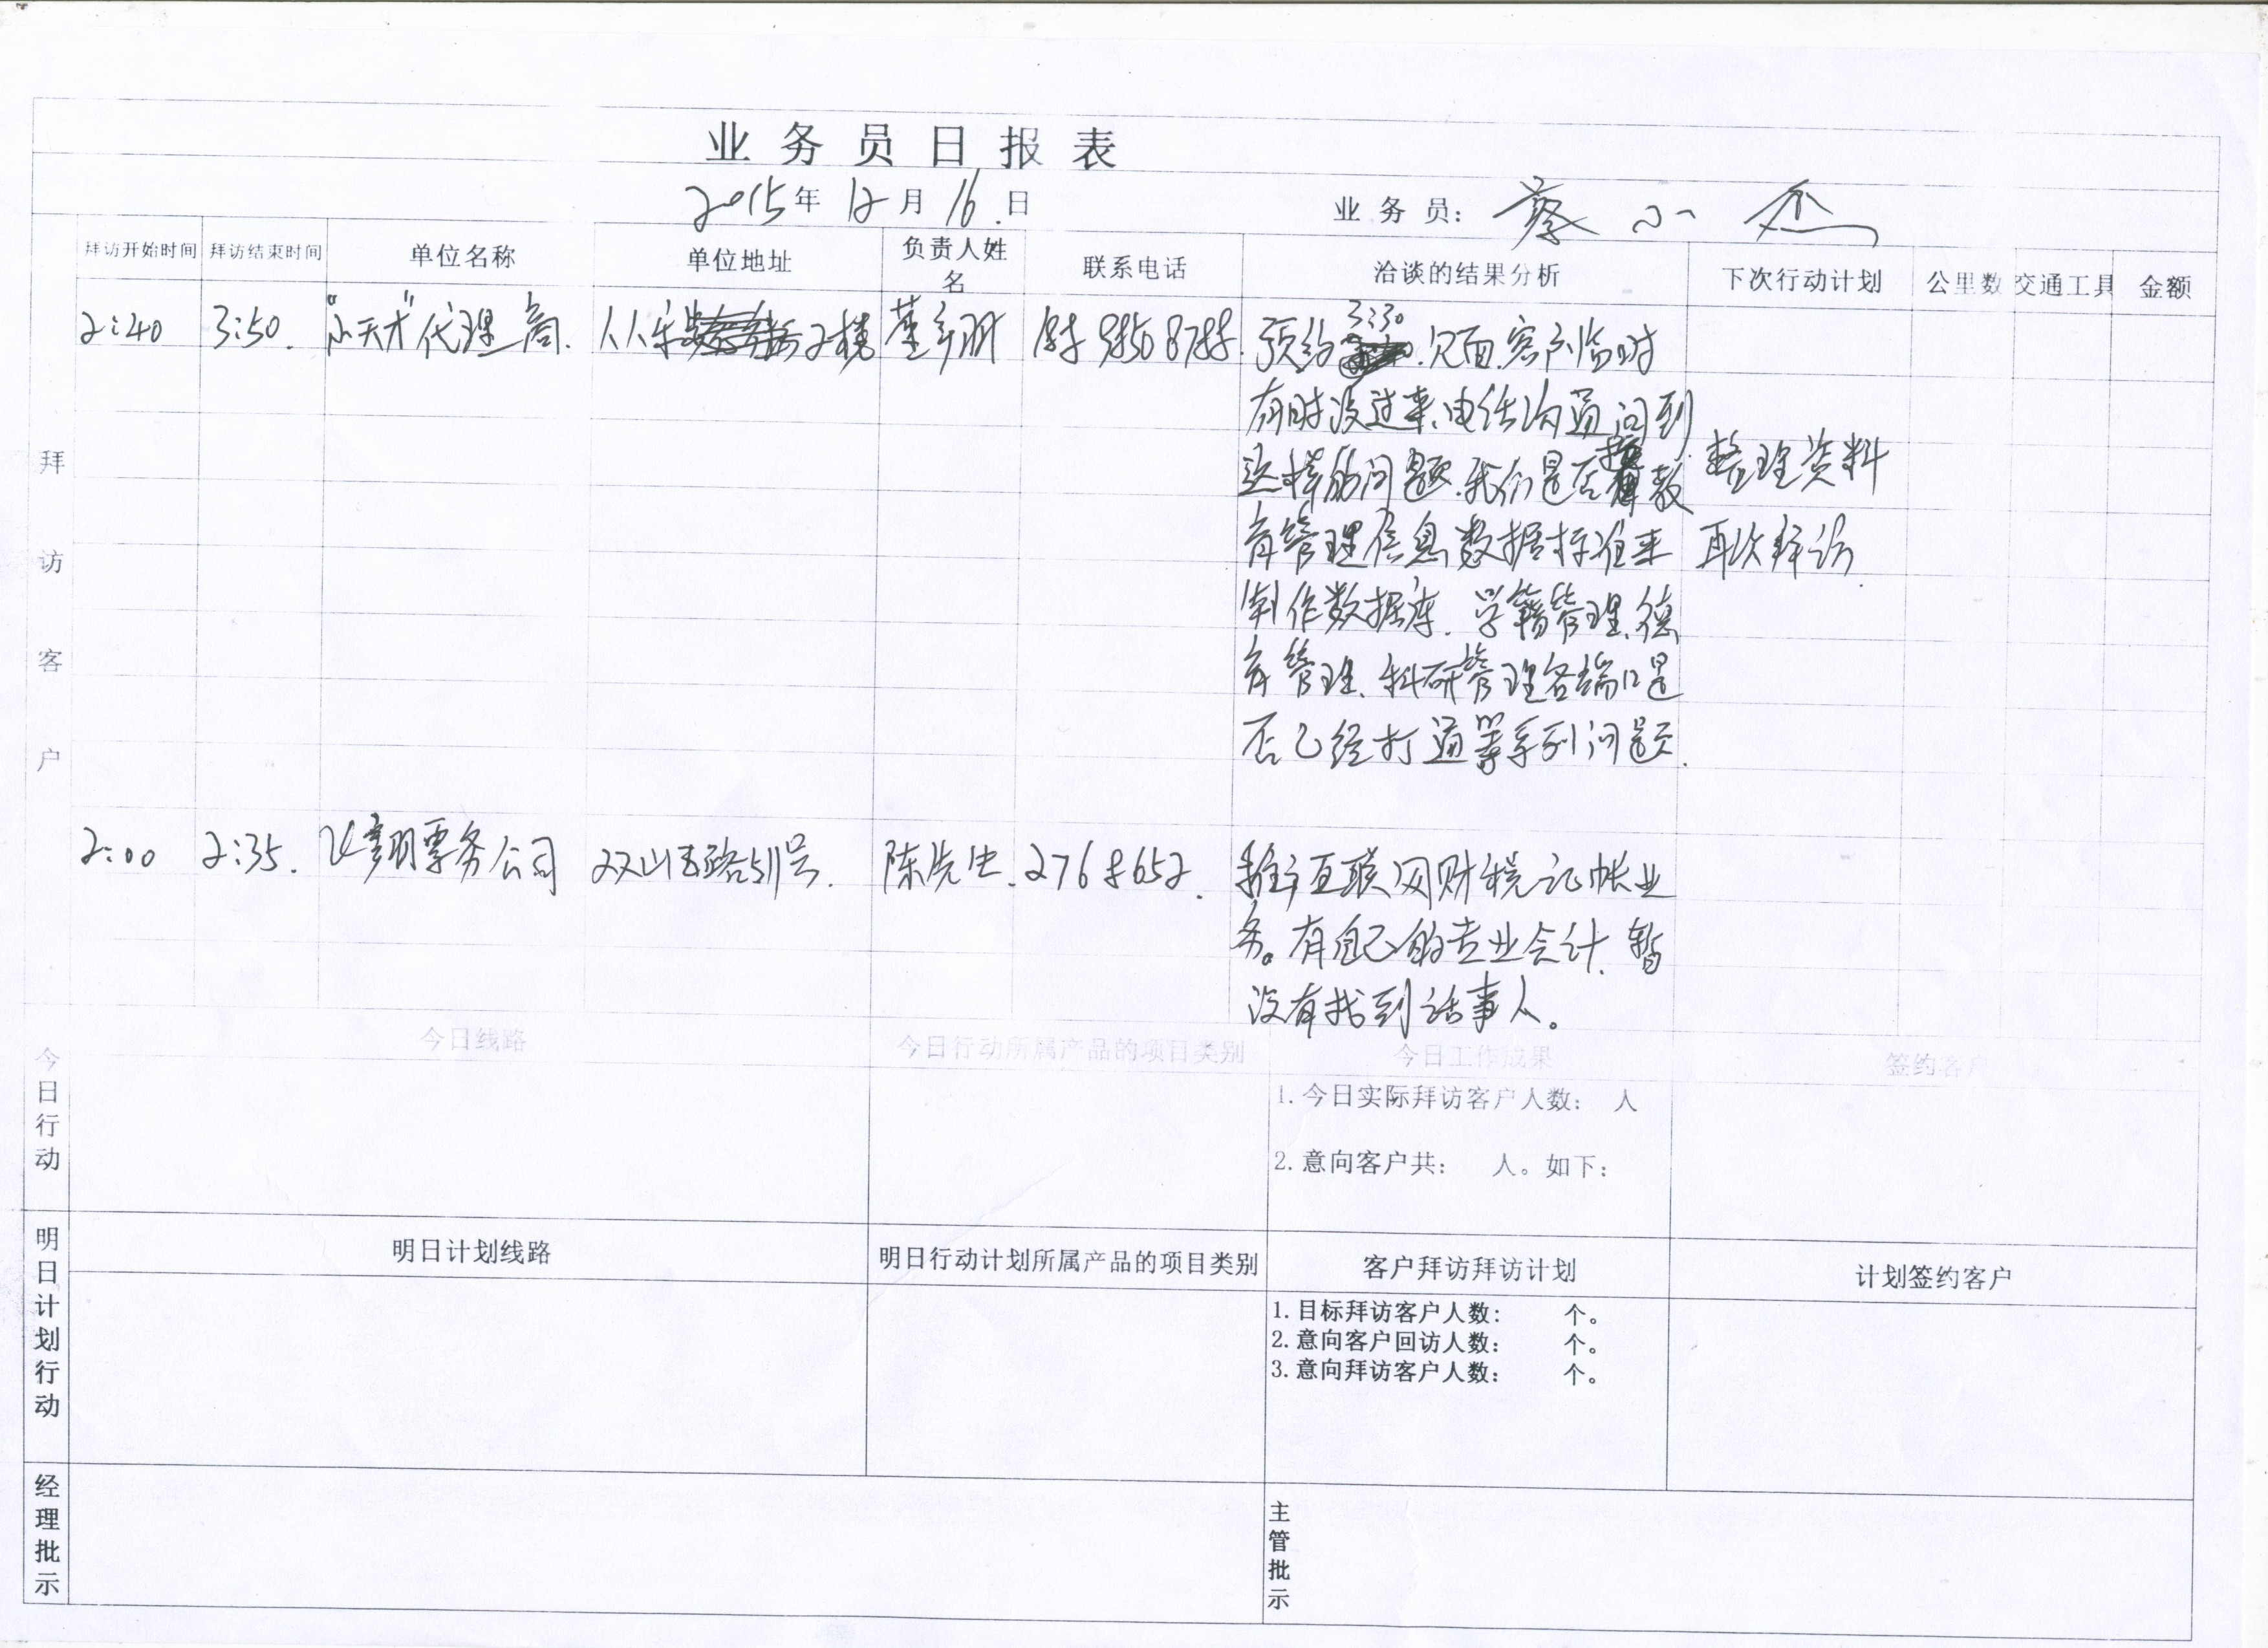 业务员日报表
2015年 12月 16.日 业务员: 蔡小
拜访开始时间 拜访结束时间 单位名称 单位地址 负责人姓名 联系电话 洽谈的结果分析 下次行动计划 公里数 交通工具 金额
2:40 3:50. "小天才"代理商. 人人乐 2楼 董 预约 3:30 见面.客户临时
有时没过来、电话沟通问到
这样的问题.我们是否 教 整理资料
育管理信息数据标准来 再次拜访.
制作数据库. 学籍管理、德
育管理、科研管理各端口是
否已经打通等系列问题.
2:00 2:35. 飞翔票务公司 双山 路511号. 陈先生. 互联网财税记帐业
务。有自己的专业会计、暂
没有找到话事人。
拜访客户
今日线路 今日行动所属产品的项目类别 今日工作成果 签约客户
今日行动
1.今日实际拜访客户人数: 人
2.意向客户共: 人。如下:
明日计划线路 明日行动计划所属产品的项目类别 客户拜访拜访计划 计划签约客户
明日计划行动
1.目标拜访客户人数: 个。
2.意向客户回访人数: 个。
3.意向拜访客户人数: 个。
经理批示 主管批示